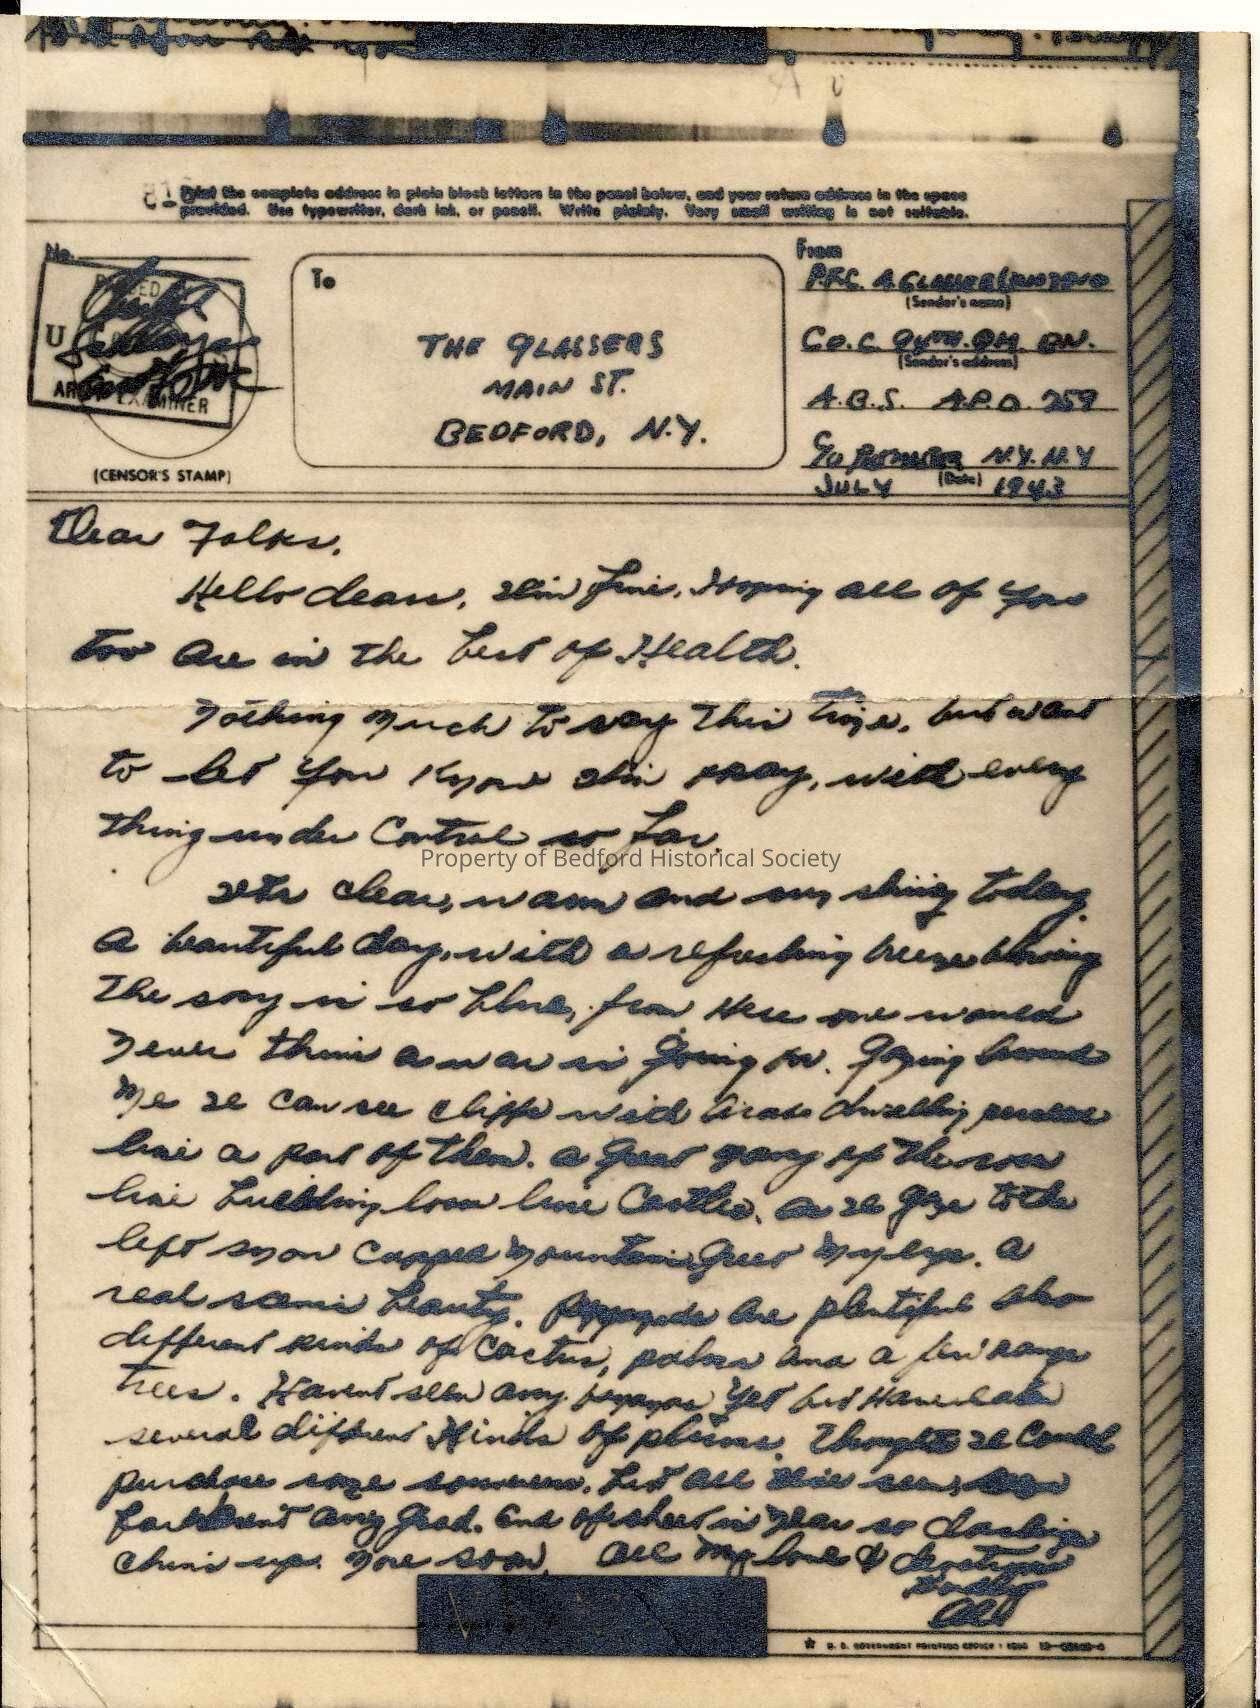 Print the complete address in plain block letters in the panel below, and your return address in the space
provided. Use typewriter, dark ink, or pencil. Write plainly. Very small writing is not suitable.
No.
From
To
P.F.C. A. GLASSER
(Sender's name)
U
ARMY EXAMINER
(CENSOR'S STAMP)
THE GLASSERS
MAIN ST.
BEDFORD, N.Y.
Co. C. 94TH. QM. BN.
(Sender's address)
A.B.S. A.P.O. 759
C/o Postmaster N.Y. N.Y
(Date)
JULY 1943
Dear Folks,
Hello dears, I'm fine. Hoping all of you
too are in the best of Health.
Nothing much to say this time, but want
to let you know I'm okay, with every
thing under Control so far.
Property of Bedford Historical Society
It's clear, warm and sun shiny today
A beautiful day, with a refreshing breeze blowing
The sky is so blue, from Here one would
Never think a war is going on. Gazing around
Me I can see cliffs with Arab dwelling
like a part of them. A great many of the
like building loom like Castles. As I gaze to the
left snow capped mountains greet my eyes. A
real scenic beauty. are plentiful also
different kinds of Cactus, palms and a few orange
trees. Haven't seen any bananas yet but Have eaten
several different Kinds of plums. Thought I could
purchase some souvenirs, but all I've seen so
far aren't any good. End of sheet is near so darlings
chins up. More soon. All my love & devotion
Al
U. S. GOVERNMENT PRINTING OFFICE